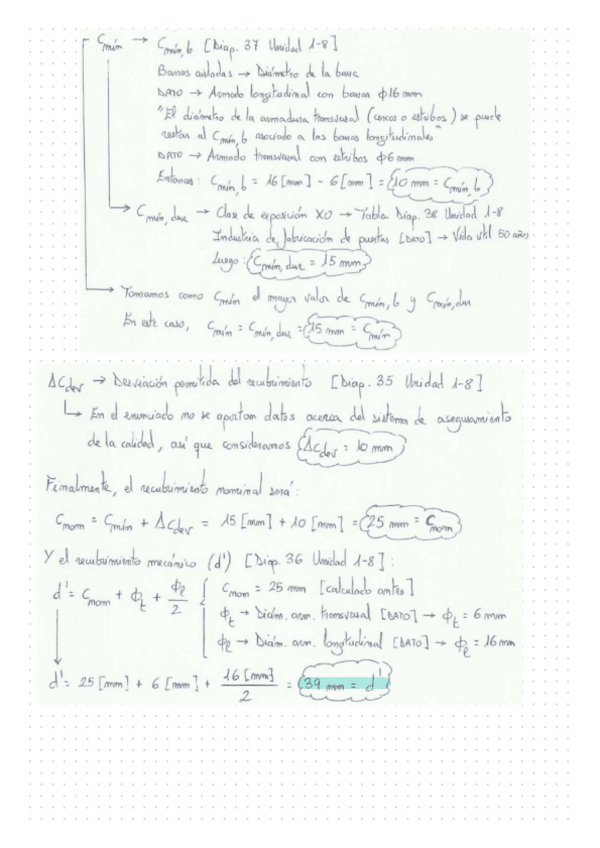 Cmín → Cmín,b [Diap. 37 Unidad 1-8]
Barras aisladas → Diámetro de la barra
DATO → Armado longitudinal con barras ϕ16mm
"El diámetro de la armadura transversal (cercos o estribos) se puede
restar al Cmín,b asociado a las barras longitudinales"
DATO → Armado transversal con estribos ϕ6mm
Entonces: Cmín,b = 16[mm] - 6[mm] = 10 mm = Cmín,b
Cmín,dur → Clase de exposición X0 → Tabla Diap. 38 Unidad 1-8
Industria de fabricación de puertas [DATO] → Vida útil 50 años
Luego: Cmín,dur = 15 mm
Tomamos como Cmín el mayor valor de Cmín,b y Cmín,dur
En este caso, Cmín = Cmín,dur = 15 mm = Cmín
ΔCdev → Desviación permitida del recubrimiento [Diap. 35 Unidad 1-8]
↳ En el enunciado no se aportan datos acerca del sistema de aseguramiento
de la calidad, así que consideramos ΔCdev = 10 mm
Finalmente, el recubrimiento nominal será:
Cnom = Cmín + ΔCdev = 15 [mm] + 10 [mm] = 25 mm = Cnom
Y el recubrimiento mecánico (d') [Diap. 36 Unidad 1-8]:
d' = Cnom + ϕt + ϕl/2 { Cnom = 25 mm [calculado antes]
ϕt → Diám. arm. transversal [DATO] → ϕt = 6mm
ϕl → Diám. arm. longitudinal [DATO] → ϕl = 16mm
d' = 25 [mm] + 6 [mm] + 16 [mm]/2 = 39 mm = d'